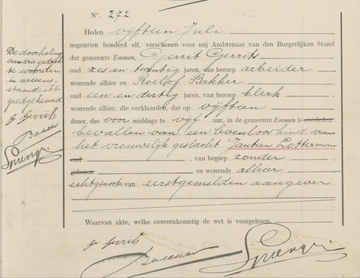 N°. 272
Heden vijftien Juli
negentien honderd elf, verschenen voor mij Ambtenaar van den Burgerlijken Stand
der gemeente Emmen, Gerrit Gerrits
oud zes en twintig jaren, van beroep arbeider
wonende alhier en Roelof Bakker
oud een en dertig jaren, van beroep klerk
wonende alhier, die verklaarden, dat op vijftien
dezer, des voor middags te vijf ure, in de gemeente Emmen is overleden
bevallen van een levenloos kind van
het vrouwelijk geslacht Jantien Lotterman
van beroep zonder
geboren en wonende alhier
echtgenoote van eerstgemelden aangever
Waarvan akte, welke overeenkomstig de wet is voorgelezen.
G Gerrits
Bakker
De doorhaling
van
woorden
goedgekeurd
G Gerrits
Bakker